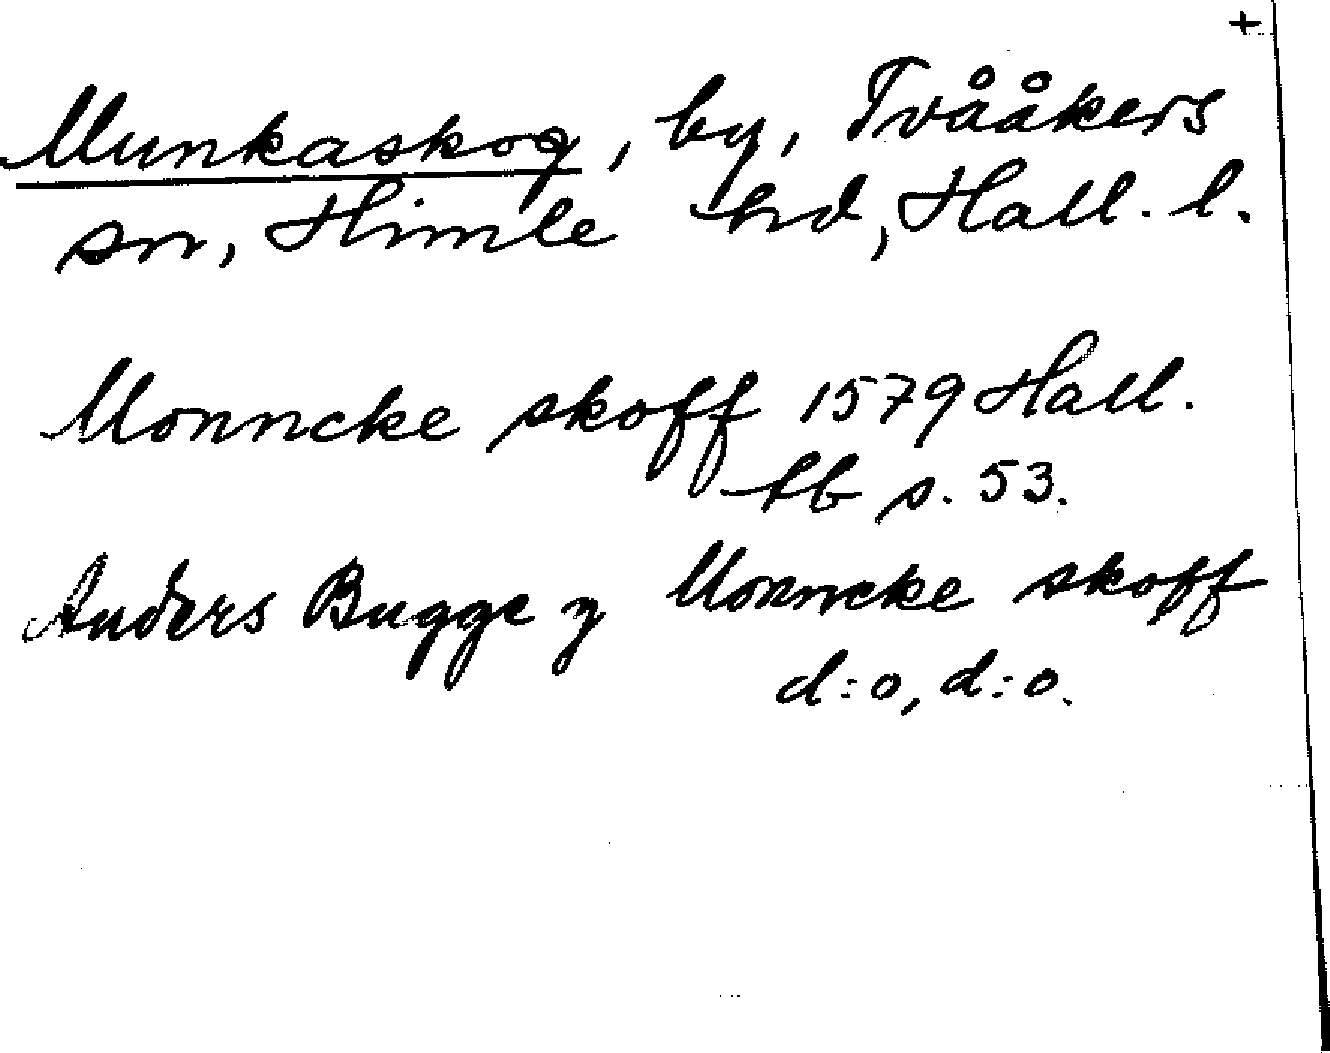 +
Munkaskog, by, Tvååkers
sn, Himle hd, Hall. l.
Monncke skoff 1579 Hall.
lb s. 53.
Anders Bugge y Monncke skoff
d:o, d:o.